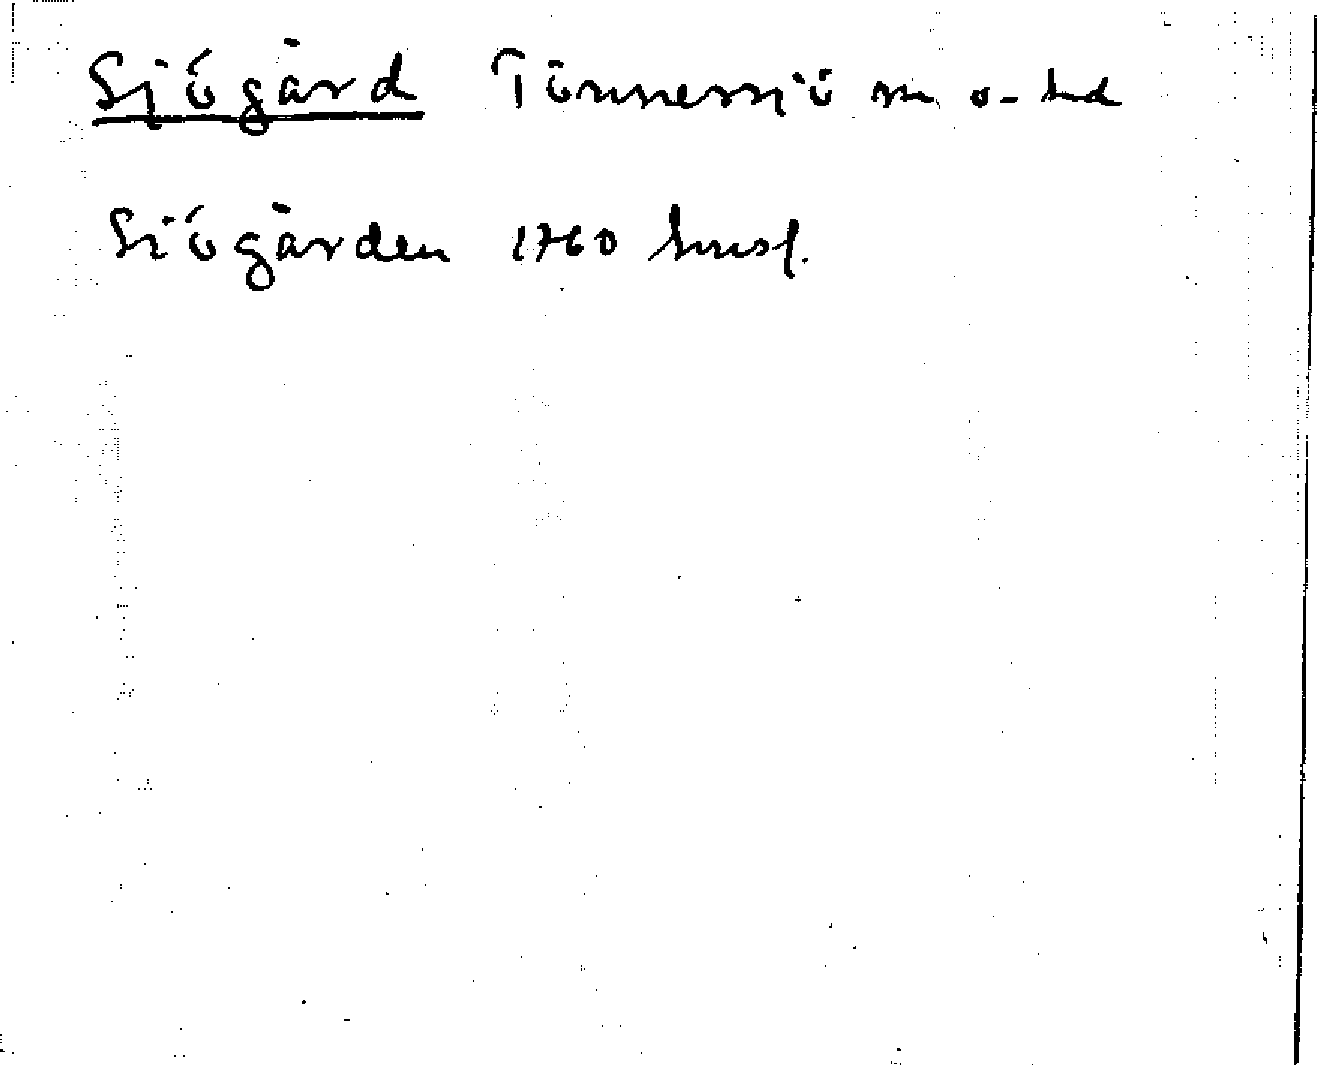 Sjögård Tönnersjö sn o. hd
Sjögården 1760 husf.